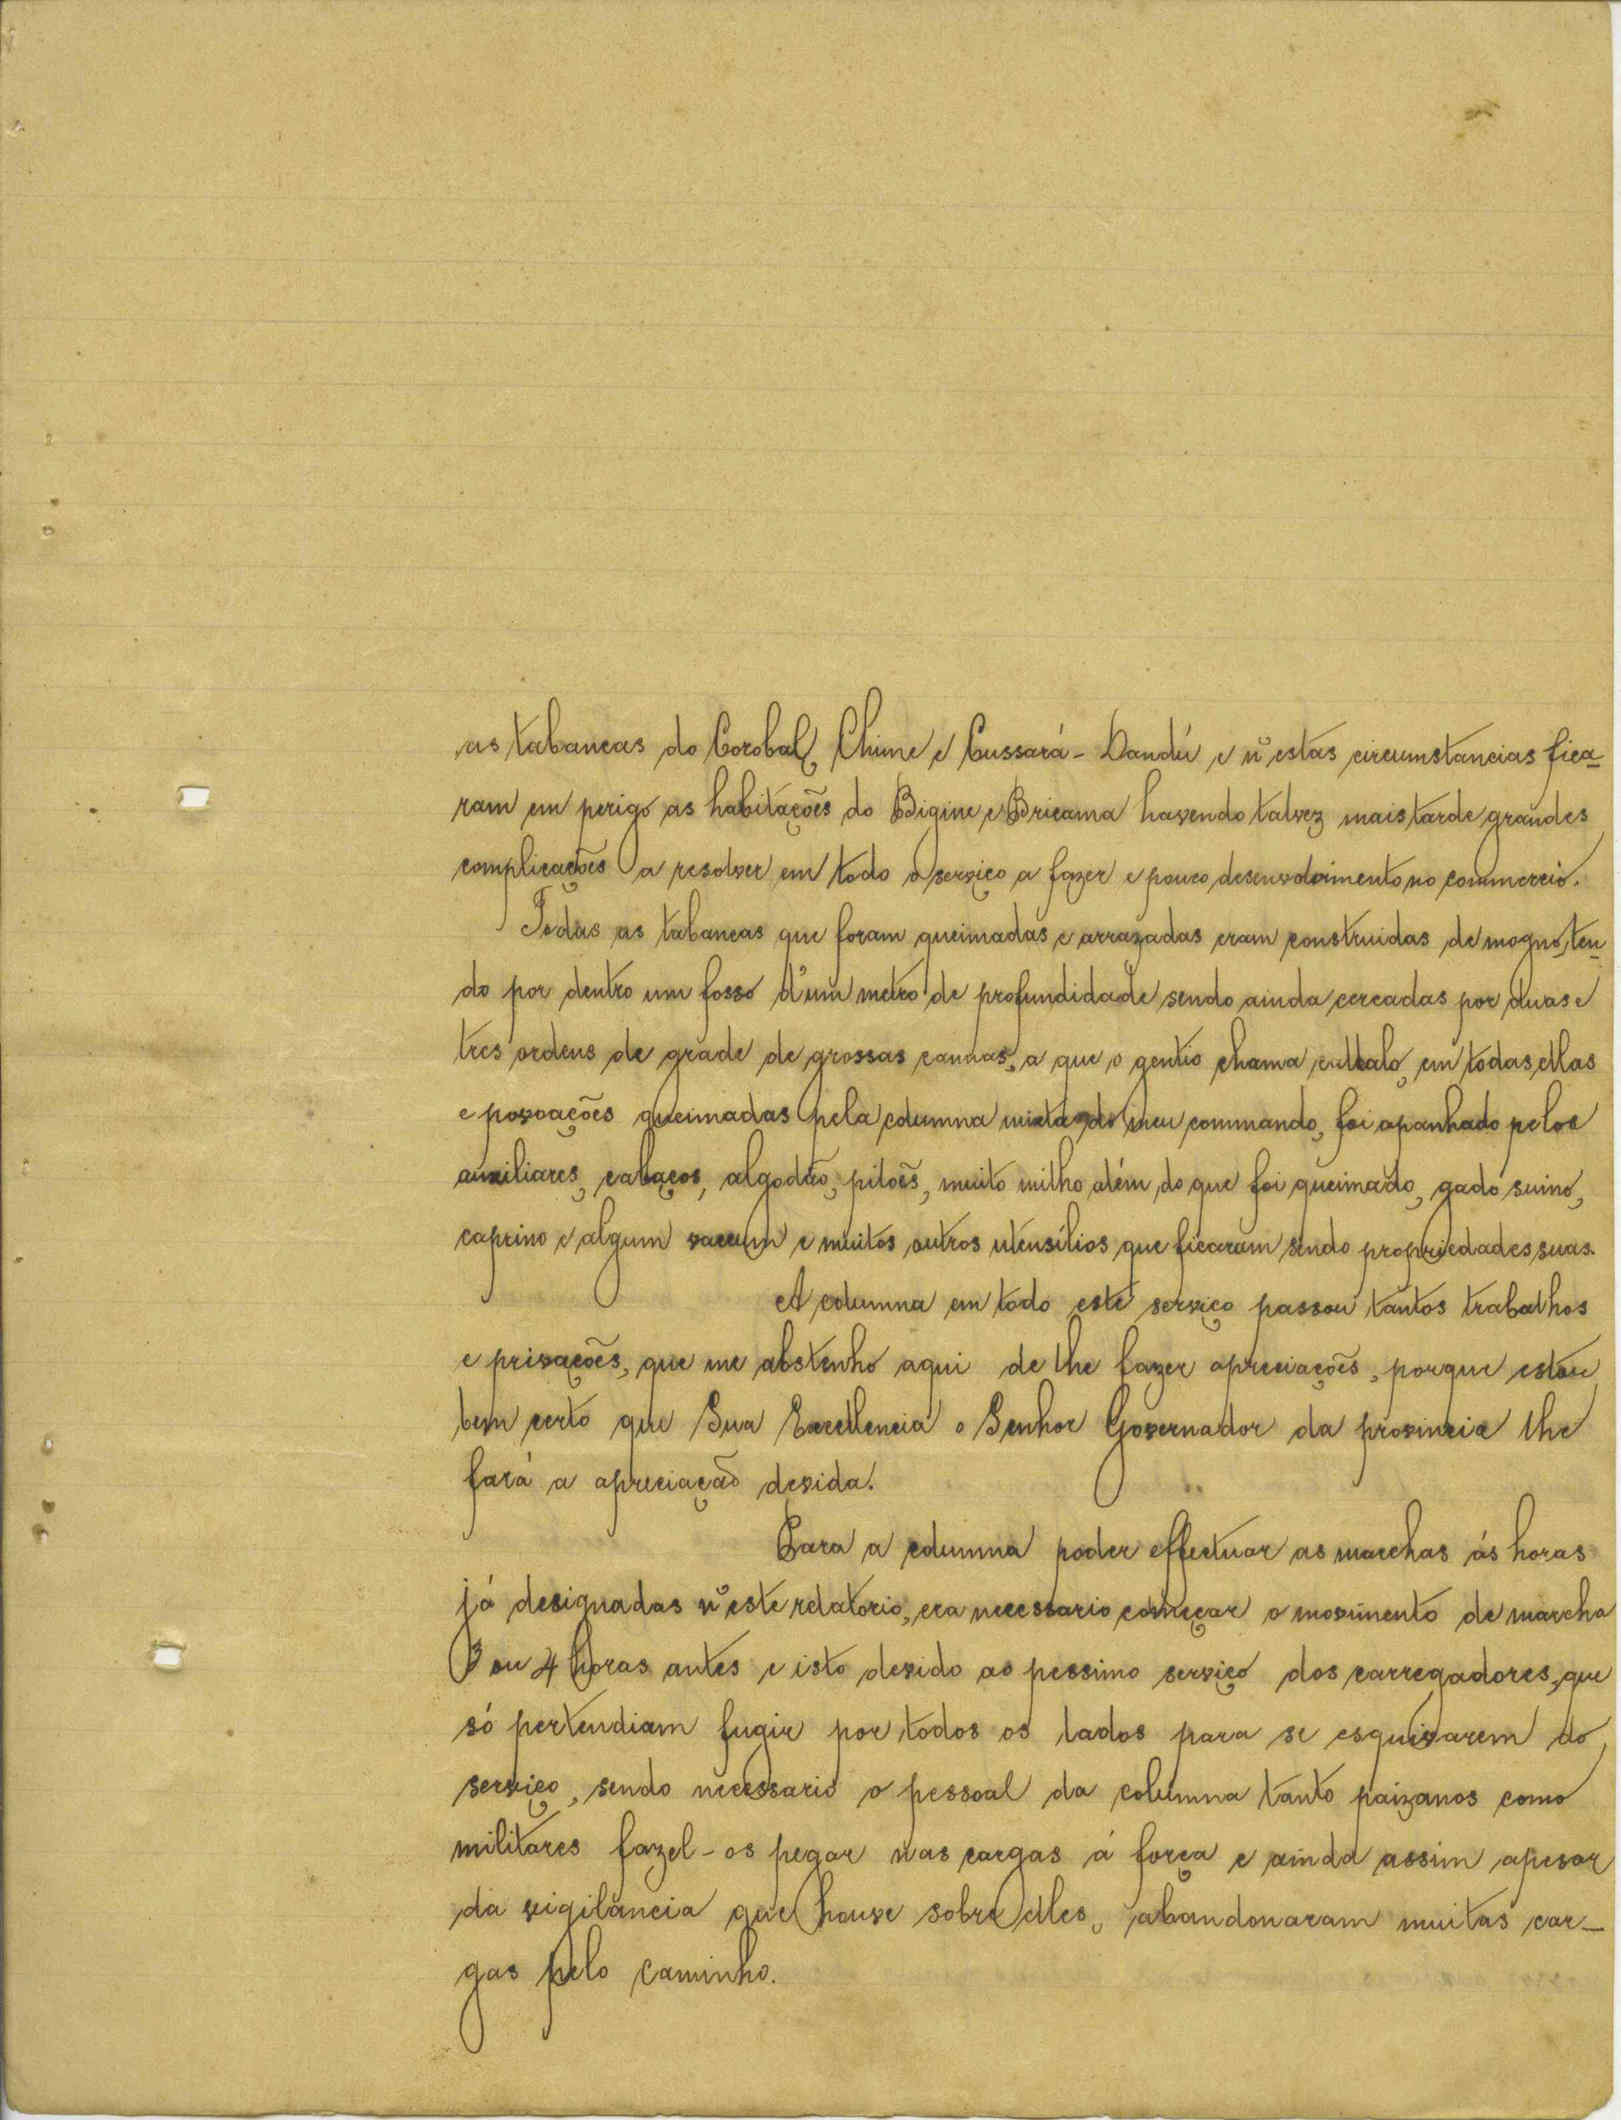 as tabancas do Corobal, Chime e Cussará - Dandú e n'estas circumstancias fica-
ram em perigo as habitações do Bigine e Bricama havendo talvez mais tarde grandes
complicações a resolver em todo o serviço a fazer e pouco desenvolvimento no commercio.
Todas as tabancas que foram queimadas e arrazadas eram construidas de mogno, ten-
do por dentro um fosso d'um metro de profundidade sendo ainda cercadas por duas e
tres ordens de grade de grossas cannas, a que o gentio chama, em todas ellas
e povoações queimadas pela columna mixta do meu commando, foi apanhado pelos
auxiliares, cabaços, algodão, pilões, muito milho além do que foi queimado, gado suino,
caprino e algum vaccum e muitos outros utensílios que ficaram sendo propriedades suas.
A columna em todo este serviço passou tantos trabalhos
e privações, que me abstenho aqui de lhe fazer apreciações, porque estou
bem certo que Sua Excellencia o Senhor Governador da provincia lhe
fará a apreciação devida.
Para a columna poder effectuar as marchas ás horas
já designadas n'este relatorio, era necessario começar o movimento de marcha
3 ou 4 horas antes e isto devido ao pessimo serviço dos carregadores, que
só pertendiam fugir por todos os lados para se esquivarem do
serviço, sendo necessario o pessoal da columna tanto paizanos como
militares fazel-os pegar nas cargas á força e ainda assim apesar
da vigilancia que houve sobre elles, abandonaram muitas car-
gas pelo caminho.